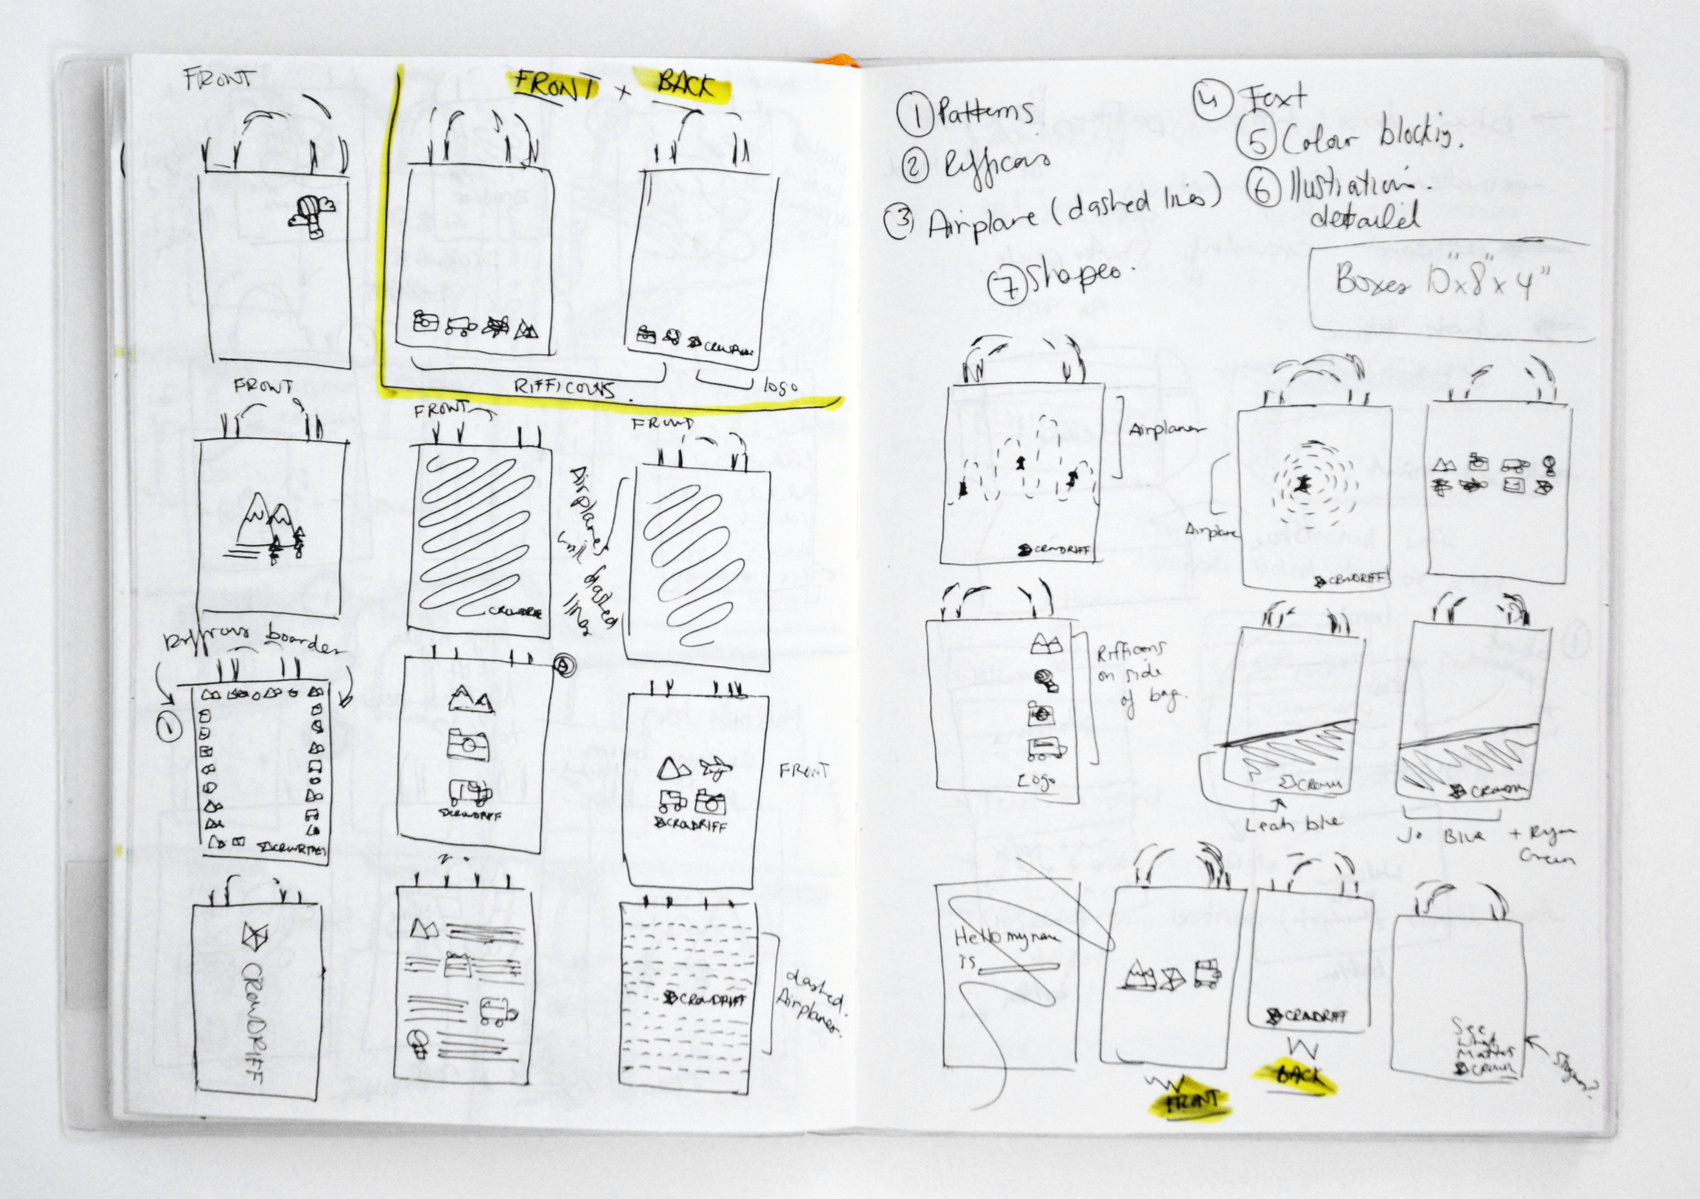 FRONT
FRONT x BACK
CROWDRIFF
RIFFICONS.
logo
FRONT
FRONT
FRONT
CROWDRIFF
Airplanes
dashed
lines
boarder
1
CROWDRIFF
CROWDRIFF
CROWDRIFF
FRONT
CROWDRIFF
CROWDRIFF
dashed.
Airplanes.
1 Patterns
2 Rifficons
3 Airplane (dashed lines)
4 Text
5 Colour blockig.
6 Illustration.
detailed
7 Shapes.
Boxes 10"x8"x4"
Airplanes
CROWDRIFF
Airplane
CROWDRIFF
Rifficons
on side
of bag.
Logo
Leah blue
Jo Blue + Ryan
Green
Hello my name
is
CROWDRIFF
FRONT
BACK
See
What
Matters
Slogans?